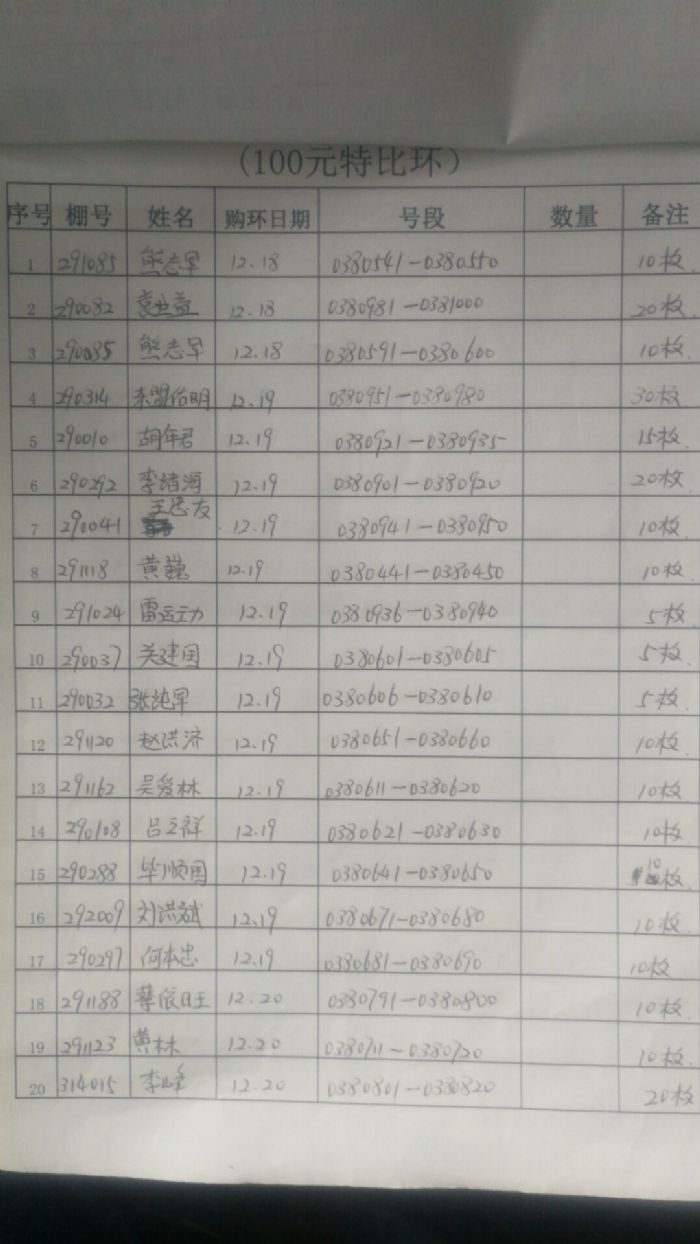 (100元特比环)
序号 棚号 姓名 购环日期 号段 数量 备注
1 291085 熊志军 12.18 0380541-0380550 10枚
2 290082 12.18 0380981-0381000 20枚
3 290085 熊志军 12.18 0380591-0380600 10枚
4 290314 东盟俗明 12.19 0380951-0380980 30枚
5 290010 胡年君 12.19 0380921-0380935 15枚
6 290292 李靖海 12.19 0380901-0380920 20枚
7 290041 王忠友 12.19 0380941-0380950 10枚
8 291118 黄巍 12.19 0380441-0380450 10枚
9 291024 雷运力 12.19 0380936-0380940 5枚
10 290037 关建国 12.19 0380601-0380605 5枚
11 290032 张纯军 12.19 0380606-0380610 5枚
12 291120 赵洪济 12.19 0380651-0380660 10枚
13 291162 吴爱林 12.19 0380611-0380620 10枚
14 290108 吕立祥 12.19 0380621-0380630 10枚
15 290288 毕顺国 12.19 0380641-0380650 10枚
16 292009 刘洪斌 12.19 0380671-0380680 10枚
17 290297 何本忠 12.19 0380681-0380690 10枚
18 291188 依日王 12.20 0380791-0380800 10枚
19 291123 黄林 12.20 0380711-0380720 10枚
20 314015 李峰 12.20 0380801-0380820 20枚